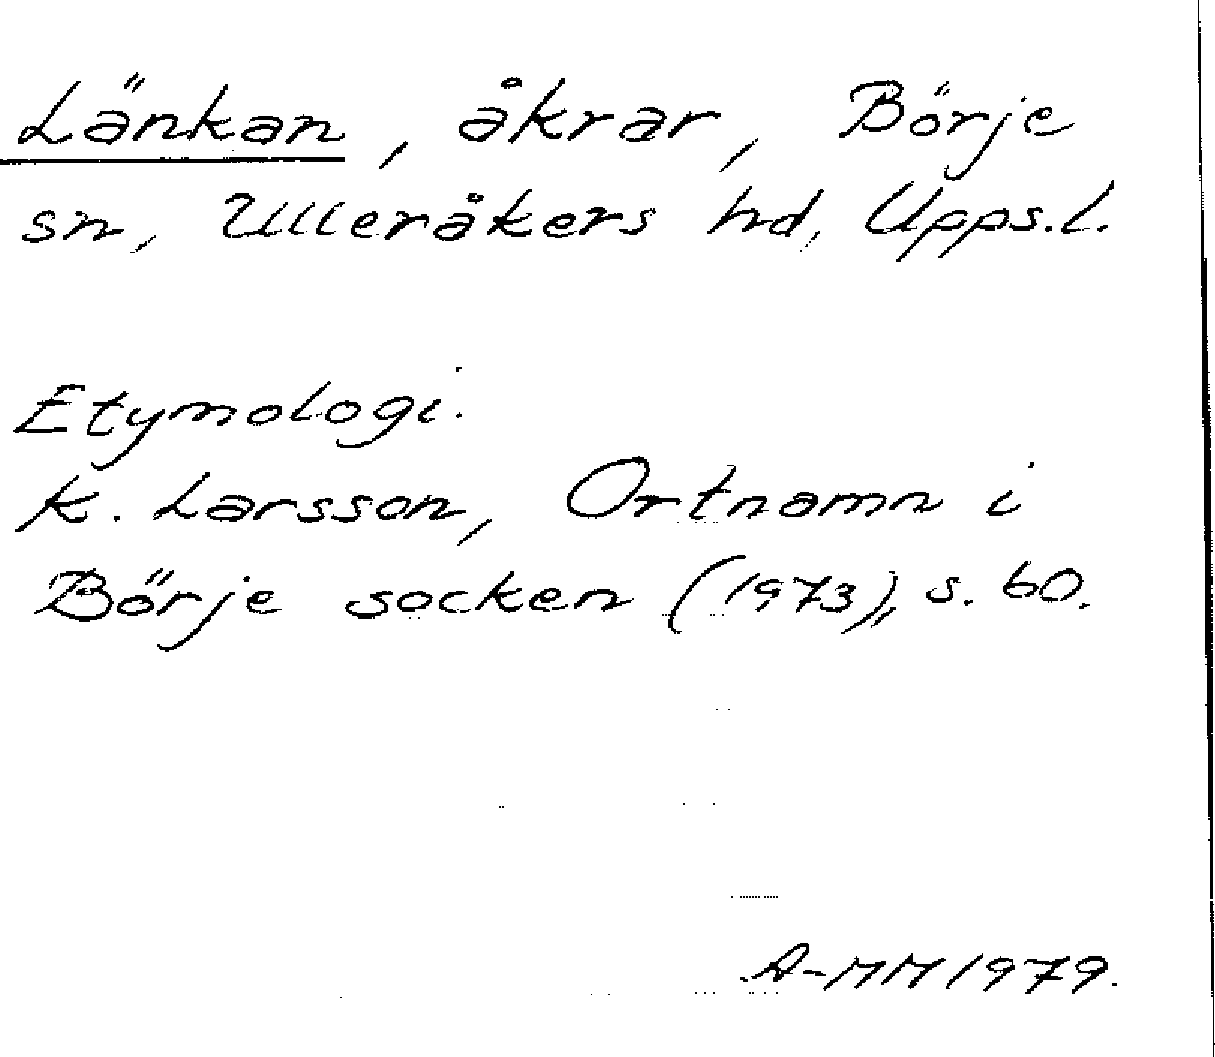 Länkan, åkrar, Börje
sn, Ulleråkers hd, Upps.l.
Etymologi.
K. Larsson, Ortnamn i
Börje socken (1973), s. 60.
A-MM 1979.